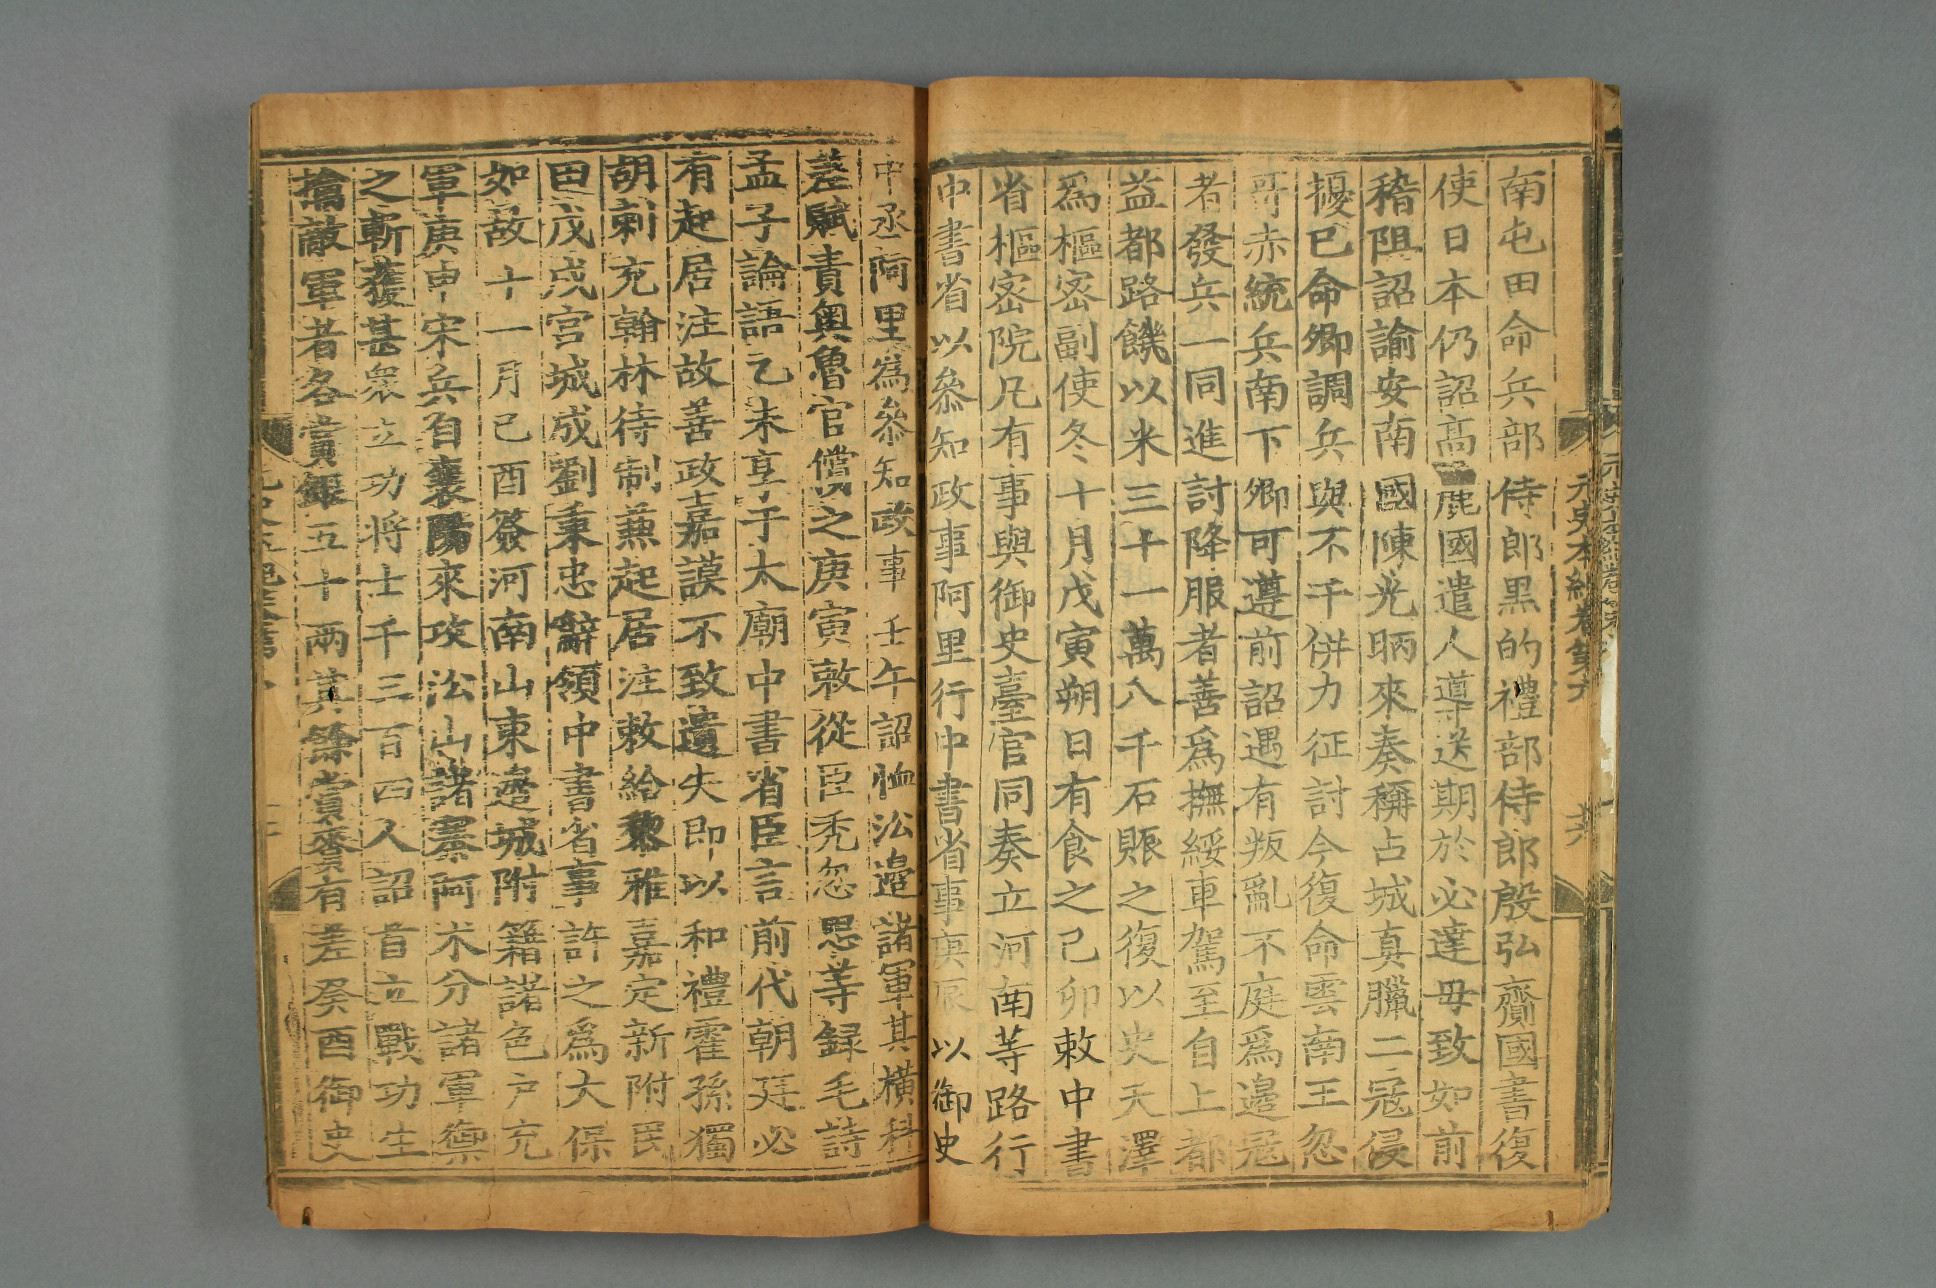 南屯田命兵部侍郎黑的禮部侍郎殷弘齎國書復
使日本仍詔高麗國遣人導送期於必達毋致如前
稽阻詔諭安南國陳光昞來奏稱占城真臘二寇侵
擾已命卿調兵與不干併力征討今復命雲南王忽
哥赤統兵南下卿可遵前詔遇有叛亂不庭爲邊寇
者發兵一同進討降服者善爲撫綏車駕至自上都
益都路饑以米三十一萬八千石賑之復以史天澤
爲樞密副使冬十月戊寅朔日有食之己卯敕中書
省樞密院凡有事與御史臺官同奏立河南等路行
中書省以叅知政事阿里行中書省事庚辰以御史
元史本紀卷第六 共
中丞阿里爲叅知政事壬午詔恤沿邊諸軍其橫科
差賦責奥魯官償之庚寅敕從臣秃忽思等録毛詩
孟子論語乙未享于太廟中書省臣言前代朝廷必
有起居注故善政嘉謨不致遺失即以和禮霍孫獨
胡剌充翰林待制兼起居注敕給黎雅嘉定新附民
田戊戌宮城成劉秉忠辭領中書省事許之爲太保
如故十一月己酉簽河南山東邊城附籍諸色户充
軍庚申宋兵自襄陽來攻沿山諸寨阿术分諸軍禦
之斬獲甚衆立功将士千三百四人詔首立戰功生
擒敵軍者各賞銀五十兩其餘賞賚有差癸酉御史